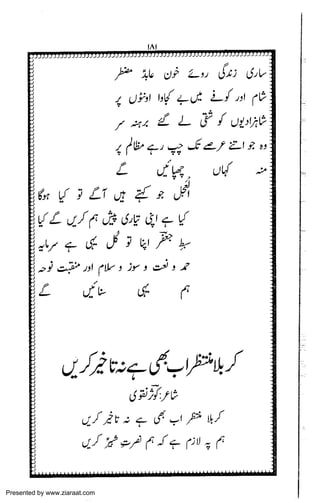 ۱۸۱
ساری زندگی روئے خون عابدِ مضطر
شام اور کوفے میں بے کجاوا اونٹوں پر
شاہزادیوں کو شقی لے گئے برہنہ سر
وہ جو اتنے عرصے تک چپ رہے مظالم پر
منہ کہاں چھپائیں گے
العجل جو کہتے ہیں آگے تو کیا ہوگا
کیا ہے اپنی تیاری پیش ہم کریں گے کیا
سبطِ جعفر اپنا تو کُل یہی ہے سرمایہ
حمد و نعت و سوز و سلام اور منقبت نوحہ
ہم یہی سنائیں گے
کربلا منتظر اب بھی ہے نہ تاخیر کریں
شاعر: کوثر نقوی
کربلا منتظر اب بھی ہے نہ تاخیر کریں
ہم پہ لازم ہے کہ ہم نصرتِ شبیر کریں
Presented by www.ziaraat.com